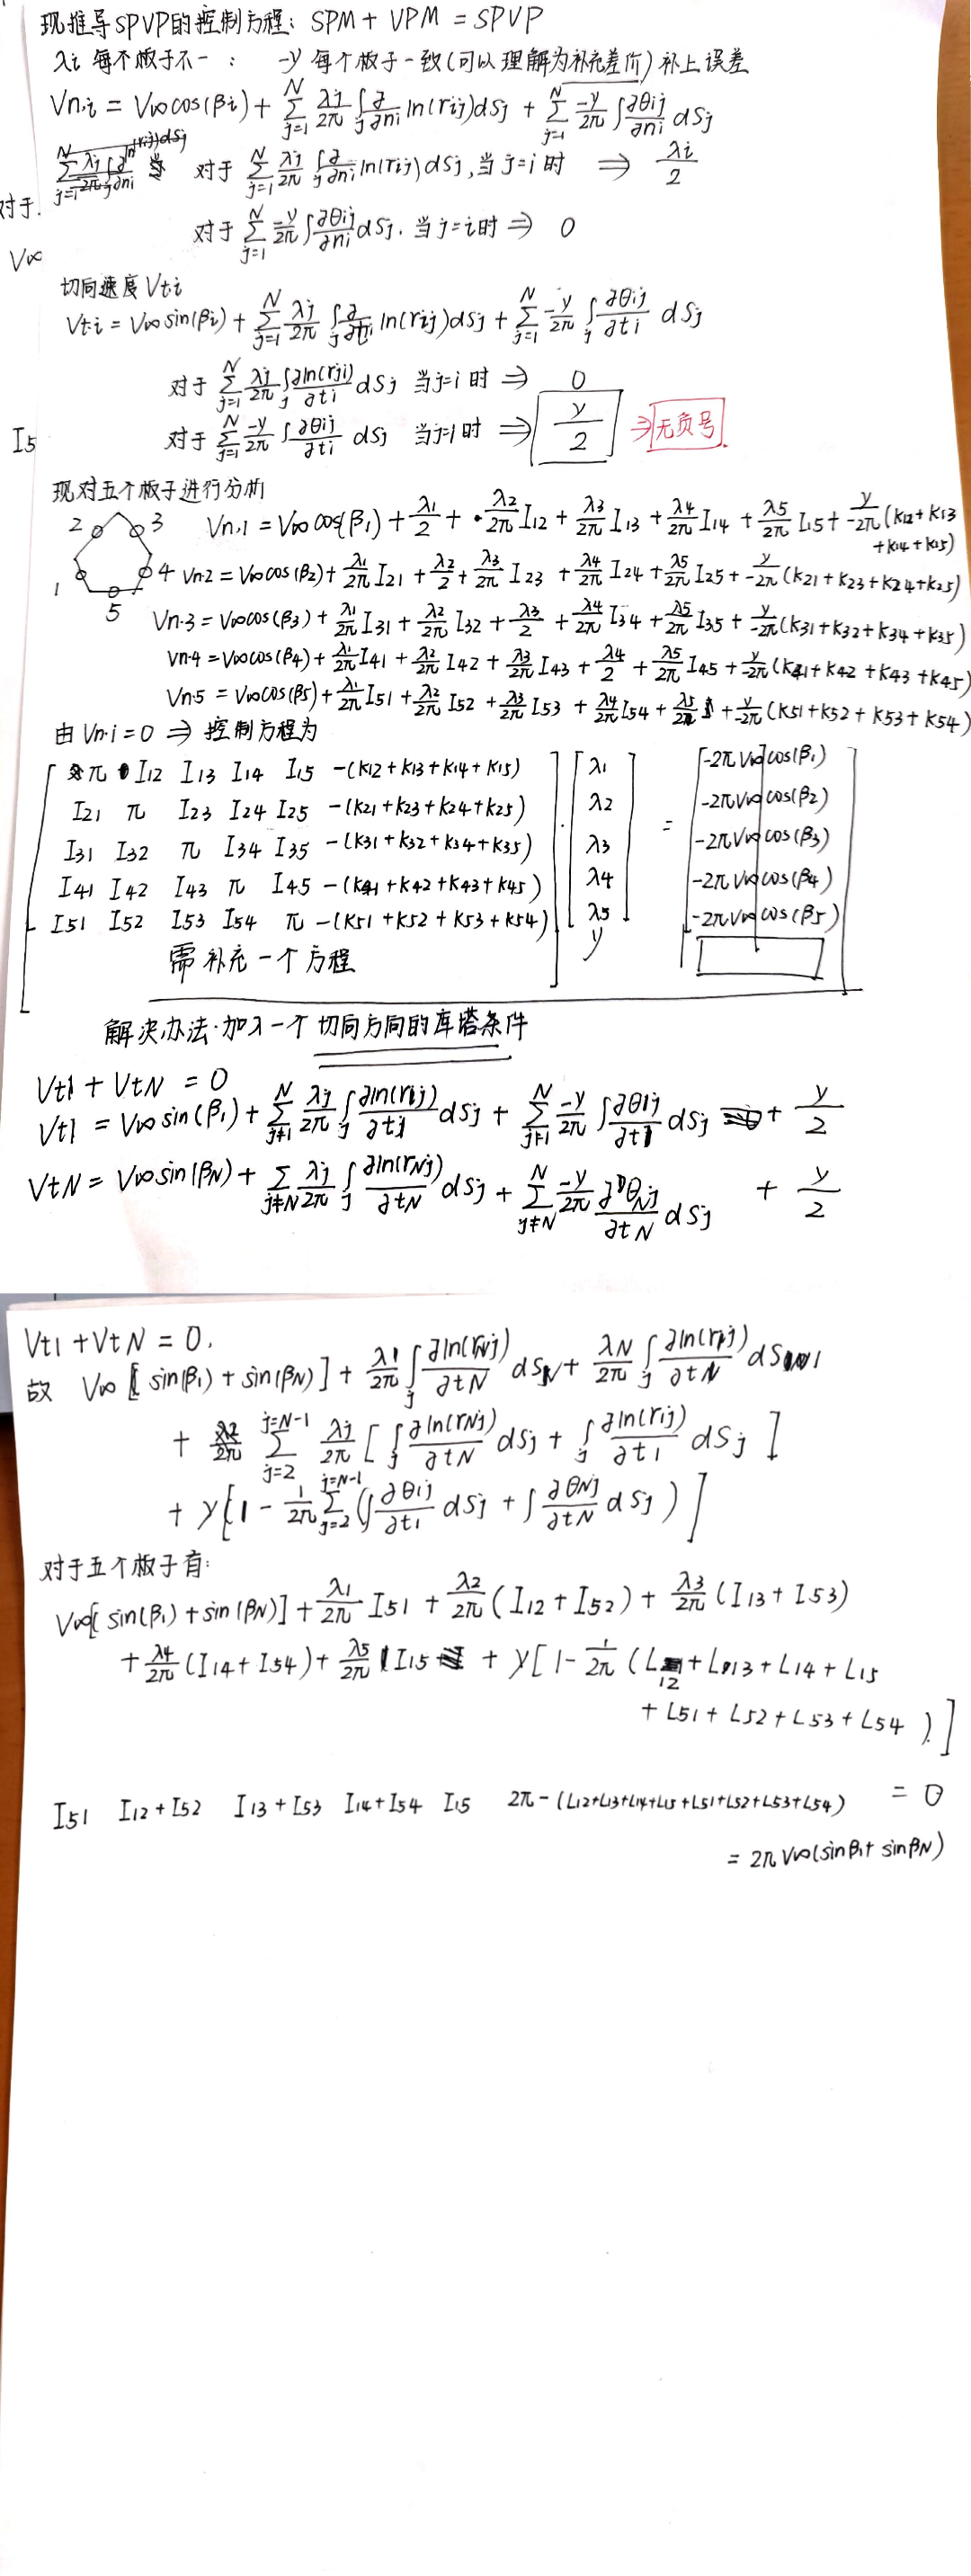 现推导SPVP的控制方程: SPM + VPM = SPVP
λi 每个板子不一 ; -γ 每个板子一致(可以理解为补充差价) 补上误差
Vn,i = V∞cos(βi) + Σ_{j=1}^{N} λj/2π ∫_j ∂/∂ni ln(rij)dSj + Σ_{j=1}^{N} -γ/2π ∫ ∂θij/∂ni dSj
对于 Σ_{j=1}^{N} λj/2π ∫_j ∂/∂ni ln(rij)dSj,当 j=i 时 ⇒ λi/2
对于.
对于 Σ_{j=1}^{N} -γ/2π ∫ ∂θij/∂ni dSj. 当j=i时 ⇒ 0
V∞
切向速度 Vti
Vti = V∞sin(βi) + Σ_{j=1}^{N} λj/2π ∫_j ∂/∂ti ln(rij)dSj + Σ_{j=1}^{N} -γ/2π ∫_j ∂θij/∂ti dSj
对于 Σ_{j=1}^{N} λj/2π ∫_j ∂ln(rji)/∂ti dSj 当j=i 时 ⇒ 0
I5
对于 Σ_{j=1}^{N} -γ/2π ∫ ∂θij/∂ti dSj 当j=i时 ⇒ γ/2 ⇒ 无负号.
现对五个板子进行分析
2 3
1 4
5
Vn,1 = V∞cos(β1) + λ1/2 + λ2/2π I12 + λ3/2π I13 + λ4/2π I14 + λ5/2π I15 + γ/-2π (K12 + K13
+ K14 + K15)
Vn2 = V∞cos(β2) + λ1/2π I21 + λ2/2 + λ3/2π I23 + λ4/2π I24 + λ5/2π I25 + γ/-2π (K21 + K23 + K24 + K25)
Vn·3 = V∞cos(β3) + λ1/2π I31 + λ2/2π I32 + λ3/2 + λ4/2π I34 + λ5/2π I35 + γ/-2π (K31 + K32 + K34 + K35)
Vn·4 = V∞cos(β4) + λ1/2π I41 + λ2/2π I42 + λ3/2π I43 + λ4/2 + λ5/2π I45 + γ/-2π (K41 + K42 + K43 + K45)
Vn·5 = V∞cos(β5) + λ1/2π I51 + λ2/2π I52 + λ3/2π I53 + λ4/2π I54 + λ5/2 + γ/-2π (K51 + K52 + K53 + K54)
由 Vn·i = 0 ⇒ 控制方程为
π I12 I13 I14 I15 -(K12 + K13 + K14 + K15) λ1 -2πV∞cos(β1)
I21 π I23 I24 I25 -(K21 + K23 + K24 + K25) λ2 -2πV∞cos(β2)
I31 I32 π I34 I35 -(K31 + K32 + K34 + K35) · λ3 = -2πV∞cos(β3)
I41 I42 I43 π I45 -(K41 + K42 + K43 + K45) λ4 -2πV∞cos(β4)
I51 I52 I53 I54 π -(K51 + K52 + K53 + K54) λ5 -2πV∞cos(β5)
需补充一个方程 γ
解决办法·加入一个 切向方向的库塔条件
Vt1 + VtN = 0
Vt1 = V∞sin(β1) + Σ_{j≠1}^{N} λj/2π ∫_j ∂ln(r1j)/∂t1 dSj + Σ_{j≠1}^{N} -γ/2π ∫ ∂θ1j/∂t1 dSj + γ/2
VtN = V∞sin(βN) + Σ_{j≠N} λj/2π ∫_j ∂ln(rNj)/∂tN dSj + Σ_{j≠N}^{N} -γ/2π ∂θNj/∂tN dSj + γ/2
Vt1 + VtN = 0.
故 V∞ [ sin(β1) + sin(βN)] + λ1/2π ∫_j ∂ln(rNj)/∂tN dS + λN/2π ∫_j ∂ln(rj)/∂tN dS1
+ Σ_{j=2}^{j=N-1} λj/2π [ ∫_j ∂ln(rNj)/∂tN dSj + ∫_j ∂ln(r1j)/∂t1 dSj ]
+ γ[1 - 1/2π Σ_{j=2}^{j=N-1} (∫ ∂θ1j/∂t1 dSj + ∫ ∂θNj/∂tN dSj ) ]
对于五个板子有:
V∞[ sin(β1) + sin(βN)] + λ1/2π I51 + λ2/2π (I12 + I52) + λ3/2π (I13 + I53)
+ λ4/2π (I14 + I54) + λ5/2π I15 + γ[ 1 - 1/2π (L12 + L13 + L14 + L15
+ L51 + L52 + L53 + L54 ) ]
I51 I12 + I52 I13 + I53 I14 + I54 I15 2π - (L12+L13+L14+L15+L51+L52+L53+L54) = 0
= 2πV∞(sinβ1 + sinβN)